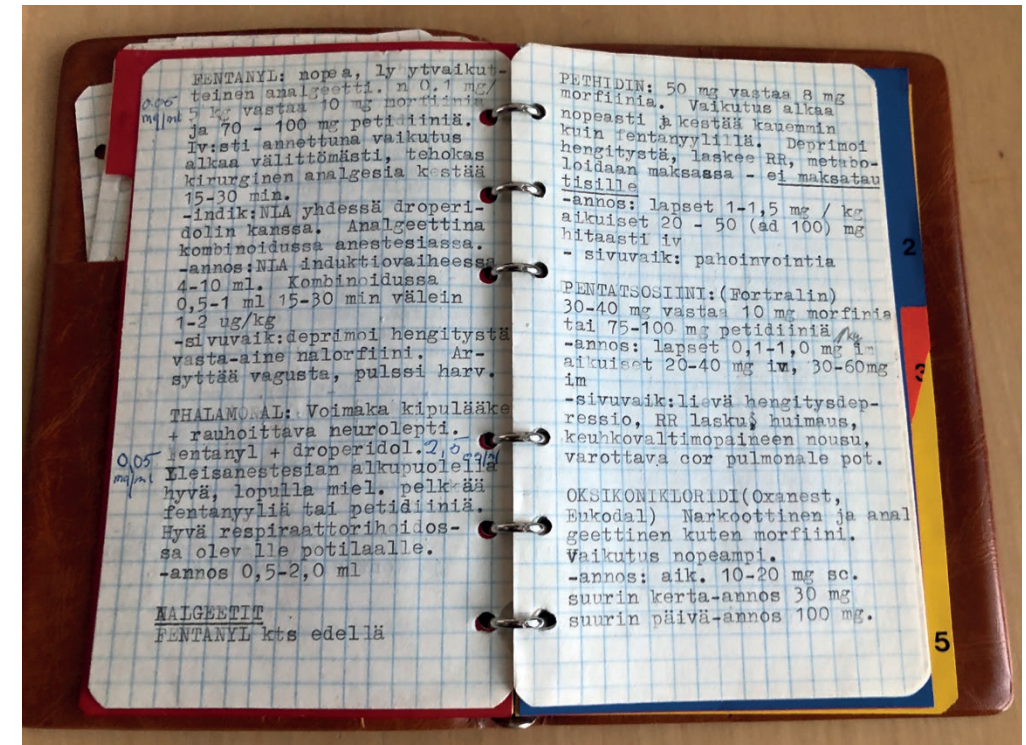 FENTANYL: nopea, ly ytvaikut-
teinen analgeetti. n 0,1 mg/
0,05
mg/ml
5 kg vastaa 10 mg morfiinia
ja 70 - 100 mg petidiiniä.
Iv:sti annettuna vaikutus
alkaa välittömästi, tehokas
kirurginen analgesia kestää
15-30 min.
-indik:NLA yhdessä droperi-
dolin kanssa. Analgeettina
kombinoidussa anestesiassa.
-annos:NLA induktiovaiheessa
4-10 ml. Kombinoidussa
0,5-1 ml 15-30 min välein
1-2 ug/kg
-sivuvaik:deprimoi hengitystä
vasta-aine nalorfiini. Är-
syttää vagusta, pulssi harv.
THALAMONAL: Voimaka kipulääke
+ rauhoittava neurolepti.
Fentanyl + droperidol. 2,5
0,05
mg/ml
Yleisanestesian alkupuolella
hyvä, lopulla miel. pelkkää
fentanyyliä tai petidiiniä.
Hyvä respiraattorihoidos-
sa olev lle potilaalle.
-annos 0,5-2,0 ml
NALGEETIT
FENTANYL kts edellä
PETHIDIN: 50 mg vastaa 8 mg
morfiinia. Vaikutus alkaa
nopeasti ja kestää kauemmin
kuin fentanyylillä. Deprimoi
hengitystä, laskee RR, metabo-
loidaan maksassa - ei maksatau
tisille
-annos: lapset 1-1,5 mg / kg
aikuiset 20 - 50 (ad 100) mg
hitaasti iv
- sivuvaik: pahoinvointia
PENTATSOSIINI:(Fortralin)
30-40 mg vastaa 10 mg morfinia
tai 75-100 mg petidiiniä
-annos: lapset 0,1-1,0 mg /kg im
aikuiset 20-40 mg iv, 30-60mg
im
-sivuvaik:lievä hengitysdep-
ressio, RR lasku, huimaus,
keuhkovaltimopaineen nousu,
varottava cor pulmonale pot.
OKSIKONIKLORIDI(Oxanest,
Eukodal) Narkoottinen ja anal
geettinen kuten morfiini.
Vaikutus nopeampi.
-annos: aik. 10-20 mg sc.
suurin kerta-annos 30 mg
suurin päivä-annos 100 mg.
2
3
5